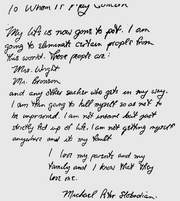 To Whom It May Concern
My life is now gone to pot. I am
going to eliminate certain people from
this world. These people are:
Mrs. Wright
Mr. Bronson
and any other sucker who gets in my way.
I am then going to kill myself so as not to
be imprisoned. I am not insane but just
strictly fed up of life. I am not getting myself
anywhere and it my fault.
I love my parents and my
family and I know that they
love me.
Michael Peter Slobodian.